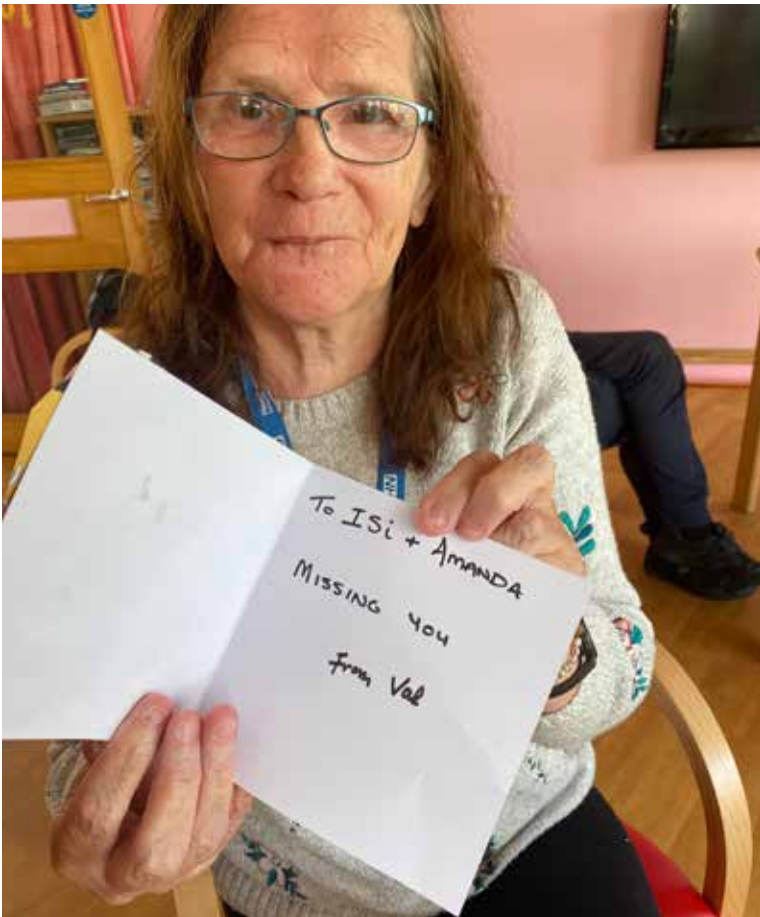 To ISi + AMANDA
MISSING YOU
From Val